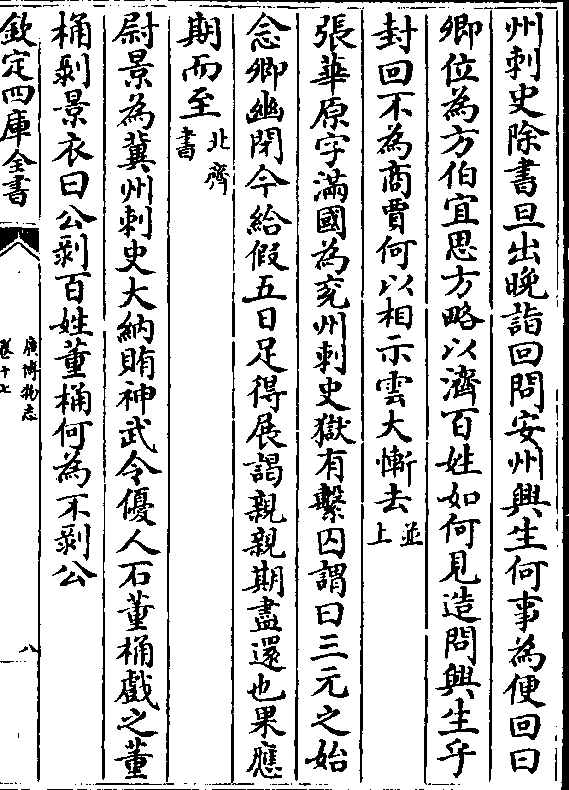 州刺史除書旦出晚詣回問安州興生何事為便回曰
卿位為方伯宜思方略以濟百姓如何見造問興生乎
封回不為商賈何以相示雲大慚去並上
張華原字滿國為兖州刺史獄有繫囚謂曰三元之始
念卿幽閉今給假五日足得展謁親親期盡還也果應
期而至北齊書
尉景為冀州刺史大納賄神武令優人石董桶戲之董
桶剥景衣曰公剥百姓董桶何為不剥公
欽定四庫全書
廣博物志
卷十七
八